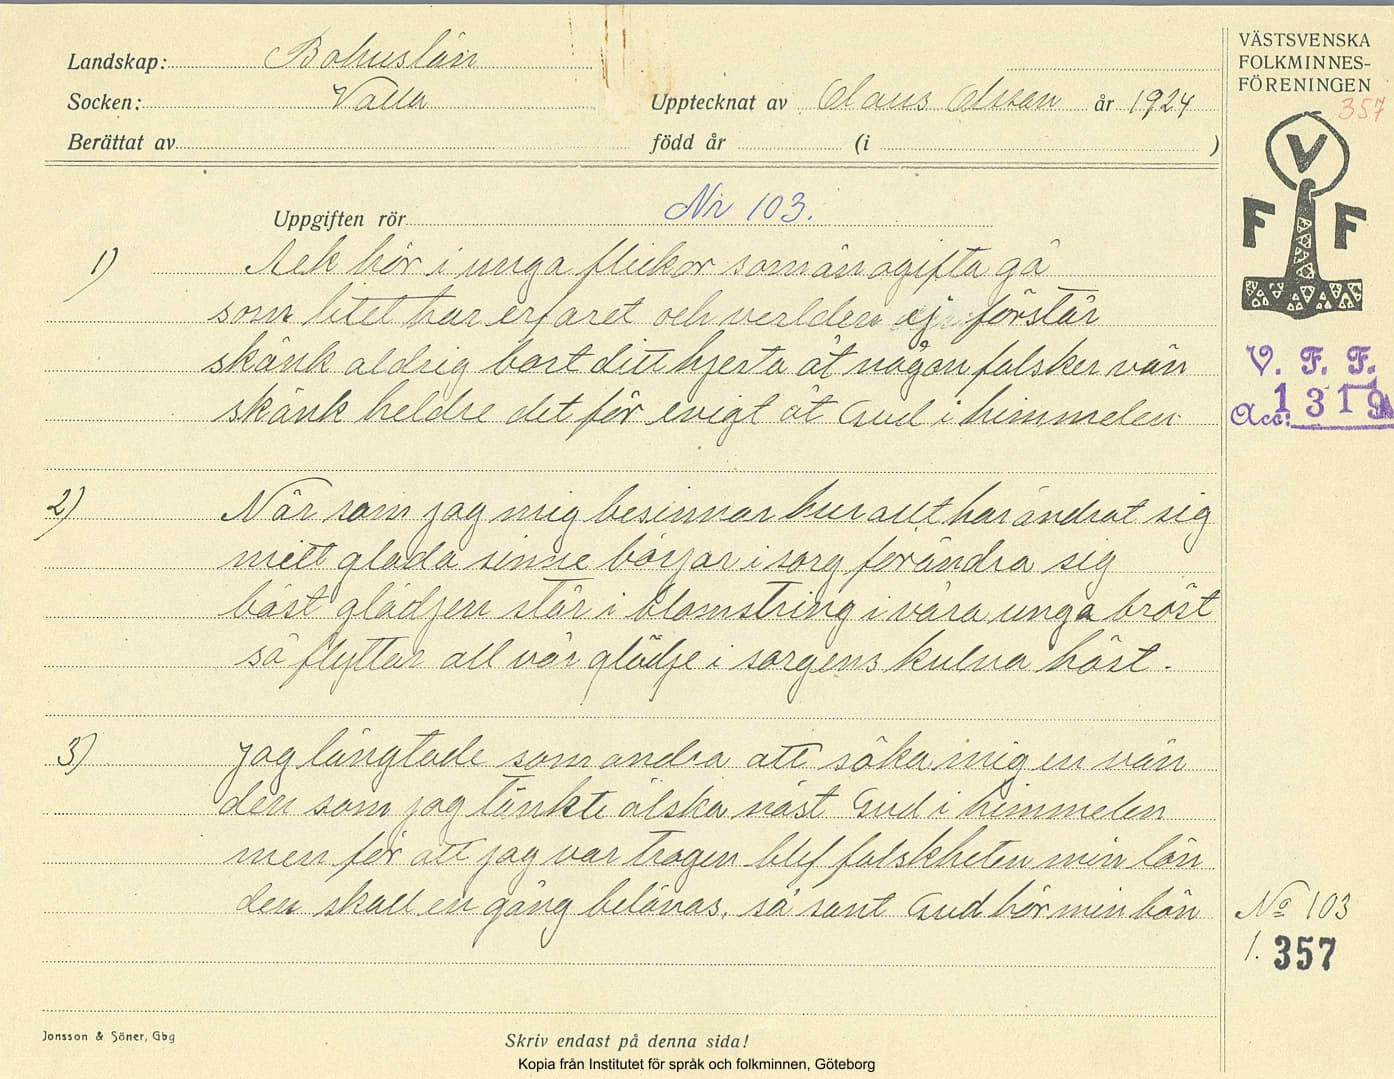 Landskap: Bohuslän
Socken: Valla
Upptecknat av Claus Olsson år 1924
Berättat av
född år (i )
VÄSTSVENSKA
FOLKMINNES-
FÖRENINGEN
357
V
F F
V. F. F.
Acc: 1319
Uppgiften rör Nr 103.
1) Ack hör i unga flickor som än ogifta gå
som litet har erfaret och verlden ej förstår
skänk aldrig bort ditt hjerta åt någon falsker vän
skänk heldre det för evigt åt Gud i himmelen
2) När som jag mig besinnar hur allt har ändrat sig
mitt glada sinne börjar i sorg förändra sig
bäst glädjen står i blomstring i våra unga bröst
så flyttar all vår glädje i sorgens kulna höst.
3) Jag längtade som andra att söka mig en vän
den som jag tänkte älska näst Gud i himmelen
men för att jag var trogen blef falskheten min lön
den skall en gång belönas, så sant Gud hör min bön
No 103
1. 357
Jonsson & Söner, Gbg
Skriv endast på denna sida!
Kopia från Institutet för språk och folkminnen, Göteborg